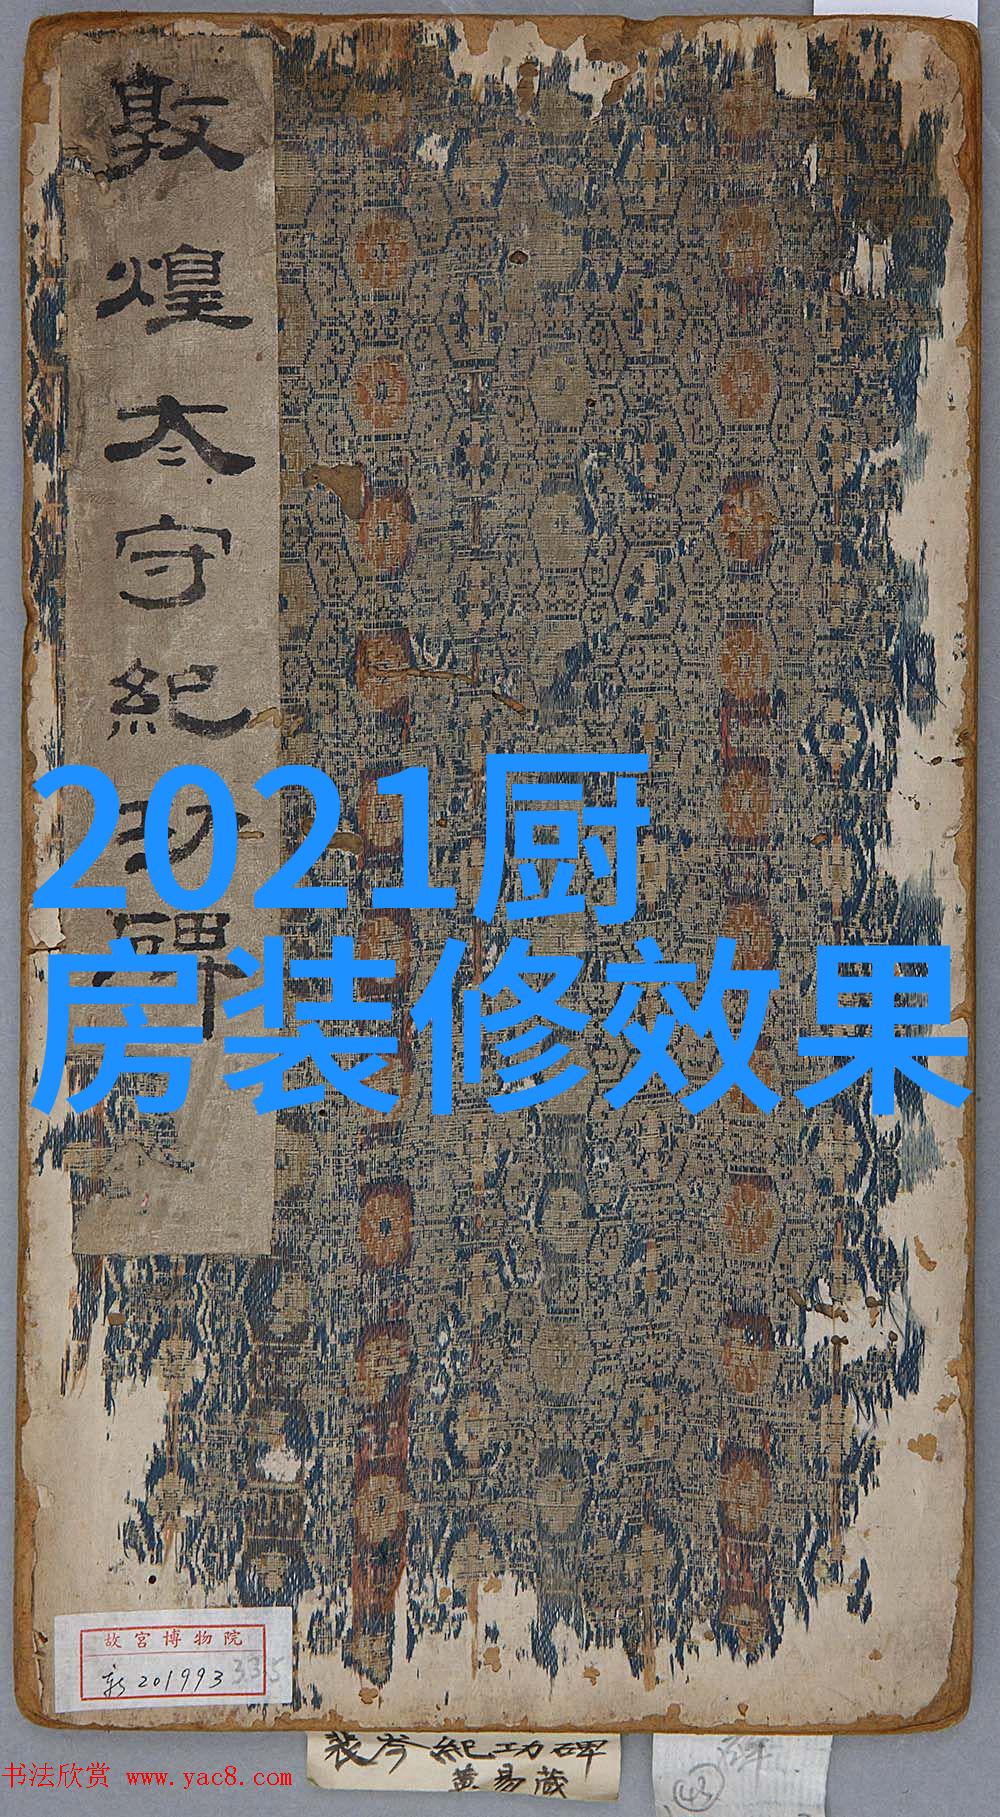 敦煌太守紀功碑
2021厨
房装修效果
故宫博物院
新201993
335
裴岑紀功碑
黄易藏
43
书法欣赏 www.yac8.com